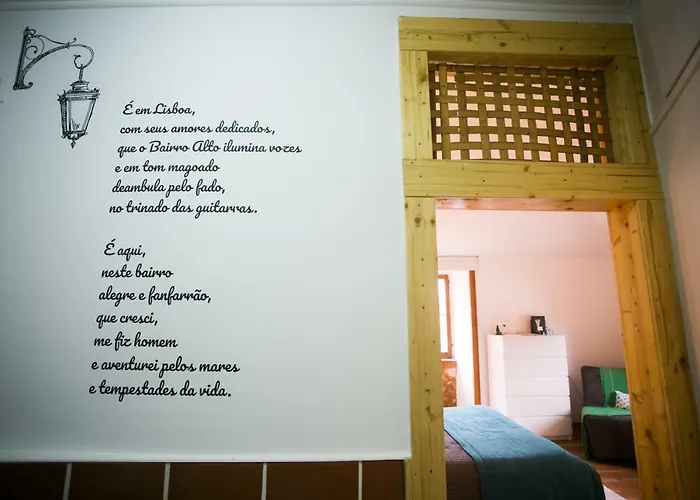 É em Lisboa,
com seus amores dedicados,
que o Bairro Alto ilumina vozes
e em tom magoado
deambula pelo fado,
no trinado das guitarras.
É aqui,
neste bairro
alegre e fanfarrão,
que cresci,
me fiz homem
e aventurei pelos mares
e tempestades da vida.